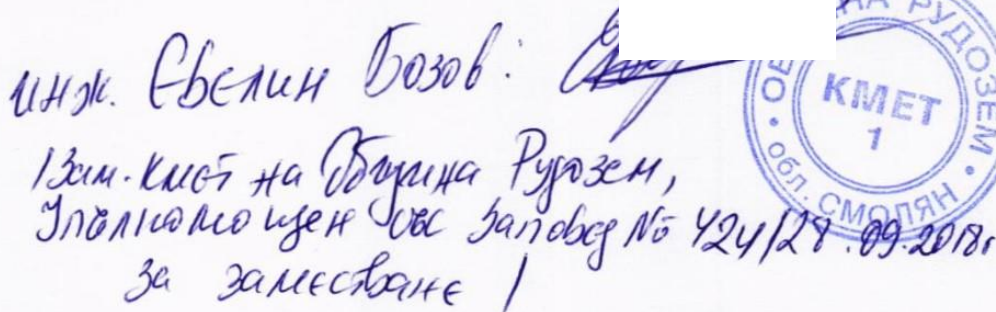 инж. Евелин Бозов:
/Зам. кмет на Община Рудозем,
Упълномощен със Заповед № 424/28.09.2018г
за заместване /
ОБЩИНА РУДОЗЕМ • обл. СМОЛЯН •
КМЕТ
1